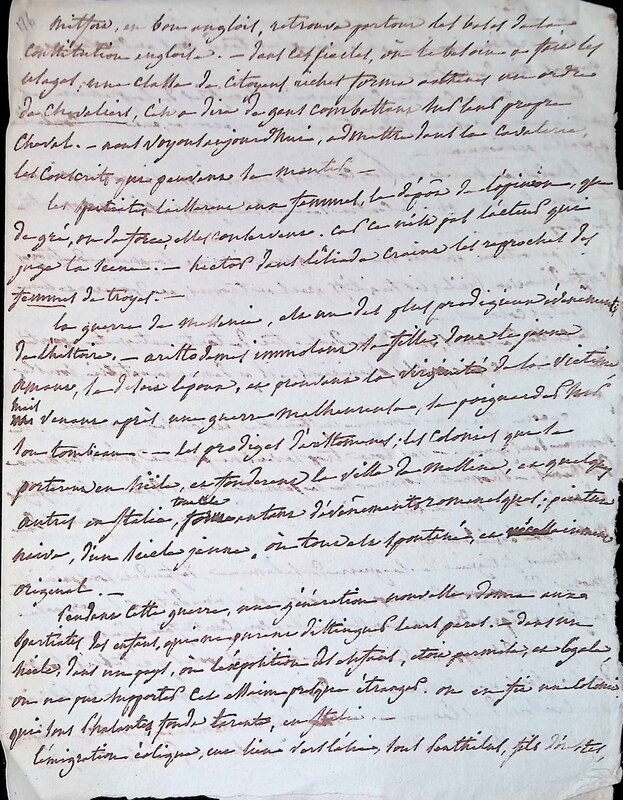 176
Mitford, en bon anglois, retrouve partout les bases de la
constitution angloise. – dans ces siecles, où le besoin a fixé les
usages, une classe de citoyens riches forma athènes un ordre
de Chevaliers, c'est a dire de gens combattans sur leur propre
Cheval. – nous voyons aujourdhui, admettre dans la cavalerie,
les conscrits qui peuvent la monter –
les laisserent aux femmes, le dépôt de l'opinion, que
de gré, ou de force elles conservent. car ce n'est pas l'acteur qui
juge la scene. – hector dans l'iliade craint les reproches des
femmes de troyes. –
la guerre de messenie, est un des plus prodigieux évènemens
de l'histoire. – aristodemes immolant sa fille, dont le jeune
amant, se disoit l'époux, en prouvant la virginité de la victime
mais venant après une guerre malheureuse, se poignarder sur
son tombeau – les prodiges d'aristomenes; les colonies qui se
porterent en Sicile, et fonderent la ville de Messine, et quelques
autres en Italie, tout est d'évènements romanesques; peinture
naive, d'un siecle jeune, où tout est spontané, et comme
original. –
Pendant cette guerre, une génération nouvelle, donne aux
spartiates des enfans, qui ne purent distinguer leurs peres. – dans un
siecle, dans un pays, où l'exposition des enfans, étoit permise, et légale,
on ne put supporter cet essaim presque étranger. on en fit une colonie
qui sous Phalantes fonda tarente, en Italie. –
l'émigration éolique, eut lieu sous Penthilus, fils d'orestes,